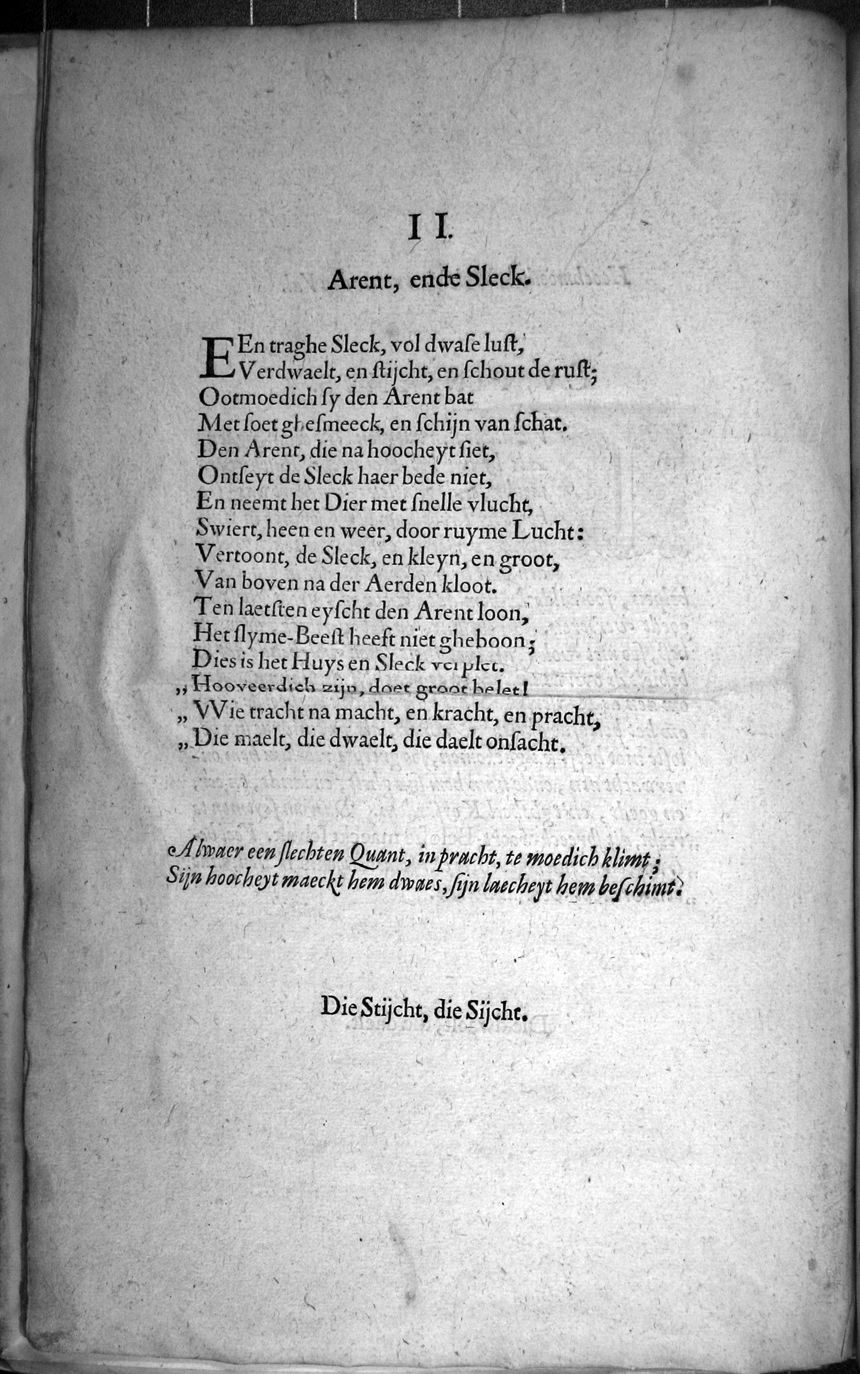 I I.
Arent, ende Sleck.
EEn traghe Sleck, vol dwaſe luſt,
Verdwaelt, en ſtijcht, en ſchout de ruſt;
Ootmoedich ſy den Arent bat
Met ſoet gheſmeeck, en ſchijn van ſchat.
Den Arent, die na hoocheyt ſiet,
Ontſeyt de Sleck haer bede niet,
En neemt het Dier met ſnelle vlucht,
Swiert, heen en weer, door ruyme Lucht:
Vertoont, de Sleck, en kleyn, en groot,
Van boven na der Aerden kloot.
Ten laetſten eyſcht den Arent loon,
Het ſlyme-Beeſt heeft niet gheboon;
Dies is het Huys en Sleck verplet.
„ Hooveerdich zijn, doet groot belet!
„ VVie tracht na macht, en kracht, en pracht,
„ Die maelt, die dwaelt, die daelt onſacht.
Alwaer een ſlechten Quant, in pracht, te moedich klimt;
Sijn hoocheyt maeckt hem dwaes, ſijn laecheyt hem beſchimt.
Die Stijcht, die Sijcht.